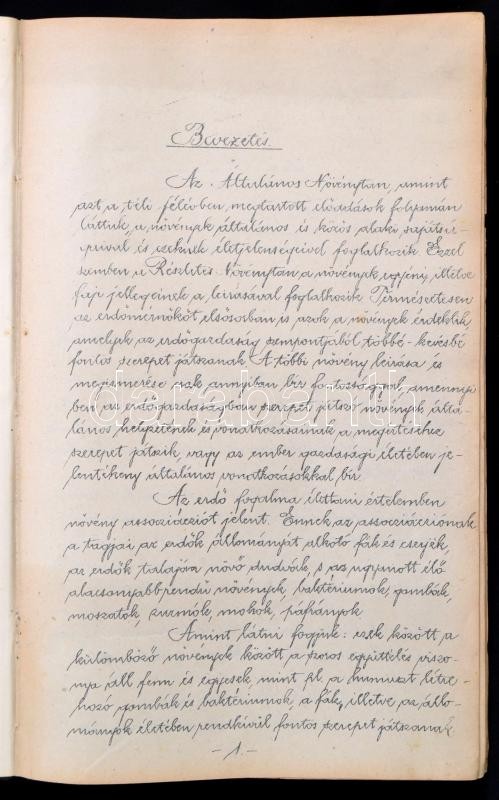 Bevezetés.
Az Általános Növénytan, amint
azt a téli félévben megtartott előadások folyamán
láttuk, a növények általános és közös alaki sajátsá-
gaival, és ezeknek életjelenségeivel foglalkozik. Ezzel
szemben a Részletes Növénytan a növények egyéni, illetve
faji jellegeinek a leírásával foglalkozik. Természetesen
az erdőmérnököt elsősorban is azok a növények érdeklik,
amelyek az erdőgazdaság szempontjából többé-kevésbé
fontos szerepet játszanak. A többi növény leírása és
megismerése csak annyiban bír fontossággal, amennyi
ben az erdőgazdaságban szerepet játszó növények álta-
lános helyzetének és vonatkozásainak a megértéséhez
szerepet játszik, vagy az ember gazdasági életében je-
lentékeny általános vonatkozásokkal bír.
Az erdő fogalma élettani értelemben
növény associációt jelent. Ennek az associációnak
a tagjai az erdők állományát alkotó fák és cserjék,
az erdők talaján növő dudvák, s az ugyanott élő
alacsonyabbrendű növények, baktériumok, gombák,
moszatok, zuzmók, mohák, páfrányok.
Amint látni fogjuk: ezek között a
különböző növények között a szoros együttélés viszo-
nya áll fenn és egyesek, mint pl. a humuszt létre-
hozó gombák és baktériumok, a fák, illetve az állo-
mányok életében rendkívül fontos szerepet játszanak.
- 1. -
darabanth